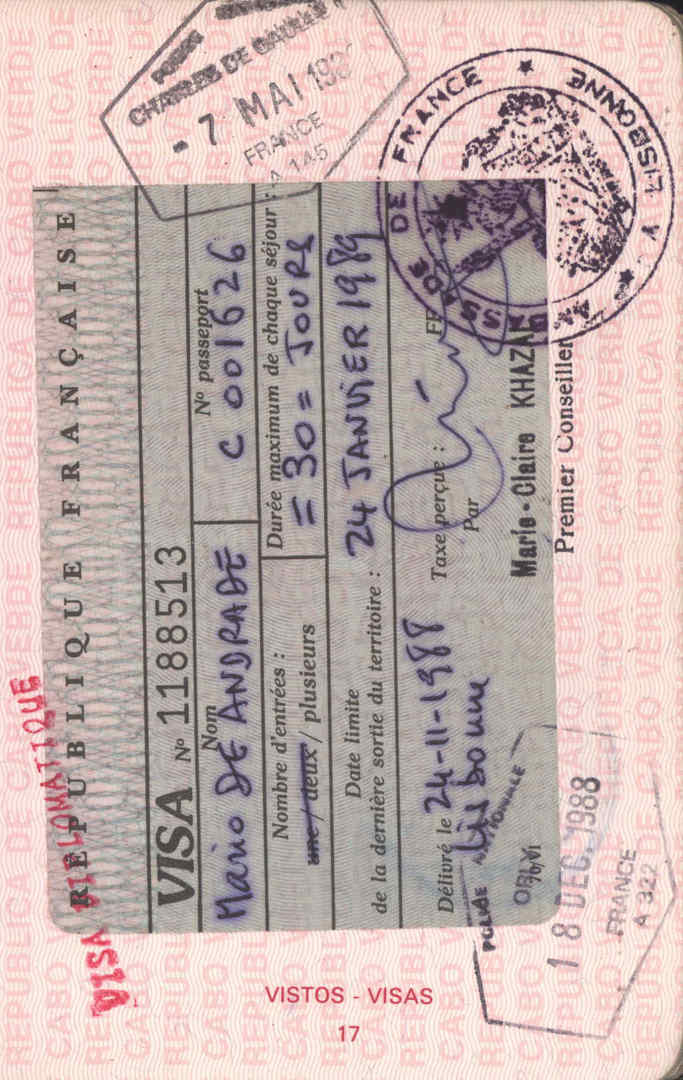 VISA DIPLOMATIQUE
RÉPUBLIQUE FRANÇAISE
VISA Nº 1188513
Nom
Mario DE ANDRADE
Nº passeport
C 001626
Nombre d'entrées :
une / deux / plusieurs
Durée maximum de chaque séjour :
= 30 = JOURS
Date limite
de la dernière sortie du territoire :
24 JANVIER 1989
Délivré le 24-11-1988
Lisbonne
Taxe perçue :
FF
Par
Marie-Claire
Premier Conseiller
AMBASSADE DE FRANCE
A LISBONNE
CHARLES DE GAULLE
- 7 MAI
FRANCE
A 145
POLICE
ORLY
18 DEC. 1988
FRANCE
A 322
VISTOS - VISAS
17
REPUBLICA DE CABO VERDE